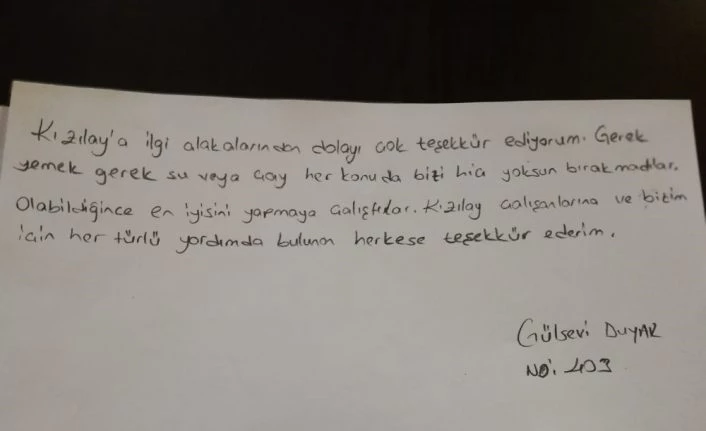 Kızılay'a ilgi alakalarından dolayı çok teşekkür ediyorum. Gerek
yemek gerek su veya çay her konuda bizi hiç yoksun bırakmadılar.
Olabildiğince en iyisini yapmaya çalıştılar. Kızılay çalışanlarına ve bizim
için her türlü yardımda bulunan herkese teşekkür ederim.
Gülsevi DUYAR
No: 403